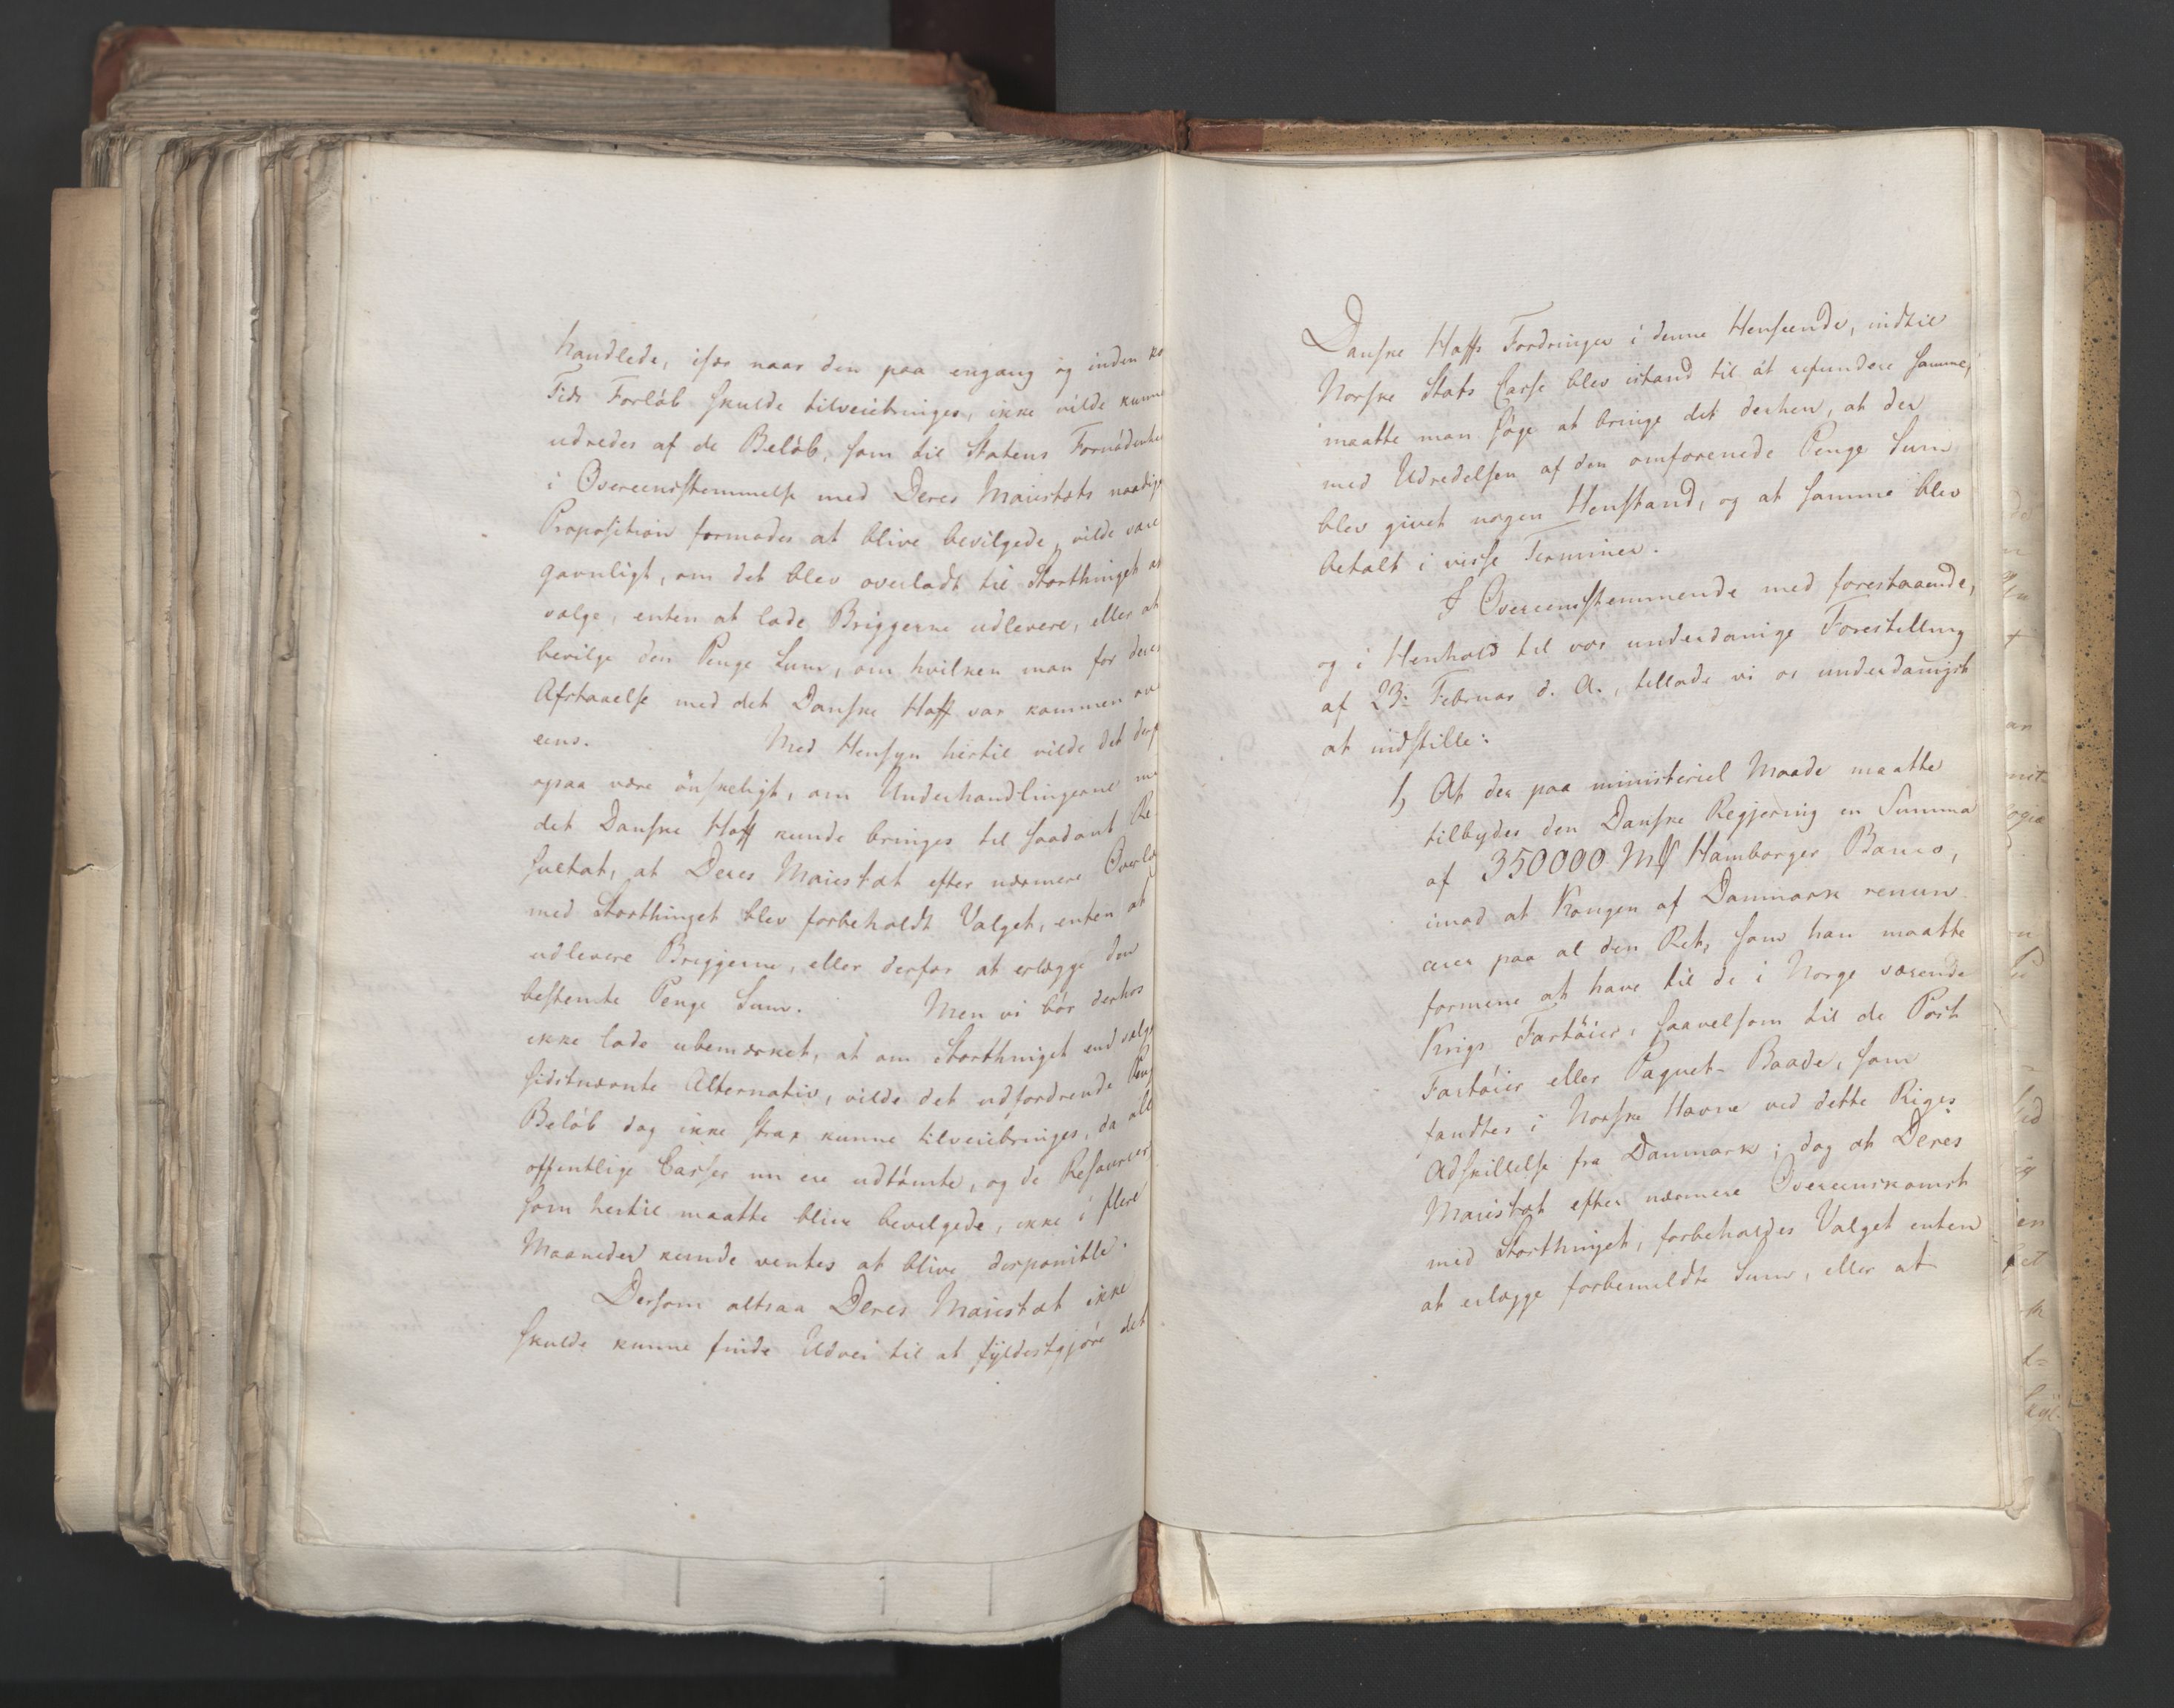 handlede, især naar den paa engang og inden ko
Tids Forløb skulde tilveiebringes, ikke vilde kunne
udredes af de Beløb, som til Statens Fornødenhe
i Overeensstemmelse med Deres Majestæts naadige
Proposition formodes at blive bevilgede, vilde være
gavnligt, om det blev overladt til Storthinget at
vælge, enten at lade Briggerne udlevere, eller at
bevilge den Penge Sum, om hvilken man for deres
Afstaaelse med det Danske Hoff var kommen ov
eens. Med Hensyn hertil vilde det
ogsaa være ønskeligt, om Underhandlingerne me
det Danske Hoff kunde bringes til saadant Re-
sultat, at Deres Majestæt efter nærmere Overlæ
med Storthinget blev forbeholdt Valget, enten at
udlevere Briggerne, eller derfor at erlægge den
bestemte Penge Sum. Men vi bør derhos
ikke lade ubemærket, at om Storthinget end valgt
sidstnævnte Alternativ, vilde det udfordrende Peng
Beløb dog ikke strax kunne tilveiebringes, da alle
offentlige Casser nu ere udtømte, og de Resourcer
som hertil maatte blive bevilgede, ikke i flere
Maaneder kunde ventes at blive disponible.
Dersom altsaa Deres Majestæt ikke
skulde kunne finde Udvei til at fyldestgjøre det
Danske Hoffs Fordringer i denne Henseende, indtil
Norske Stats Casse blev istand til at refundere samme,
maatte man søge at bringe det derhen, at der
med Udredelsen af den omforenede Penge Sum
blev givet nogen Henstand, og at samme blev
betalt i visse Terminer.
I Overeensstemmende med forestaaende,
og i Henhold til vor underdanige Forestilling
af 23: Februar d. A., tillade vi os underdanigst
at indstille:
1, At der paa ministeriel Maade maatte
tilbydes den Danske Regjering en Summa
af 350000 Mk Hamborger Banco,
imod at Kongen af Danmark renun
cerer paa al den Ret, som han maatte
formene at have til de i Norge værende
Krigs Fartøier, saavelsom til de Post
Fartøier eller Paquet-Baade, som
fandtes i Norske Havne ved dette Riges
Adskillelse fra Danmark; dog at Deres
Majestæt efter nærmere Overeenskomst
med Storthinget, forbeholdes Valget enten
at erlægge forbemeldte Sum, eller at